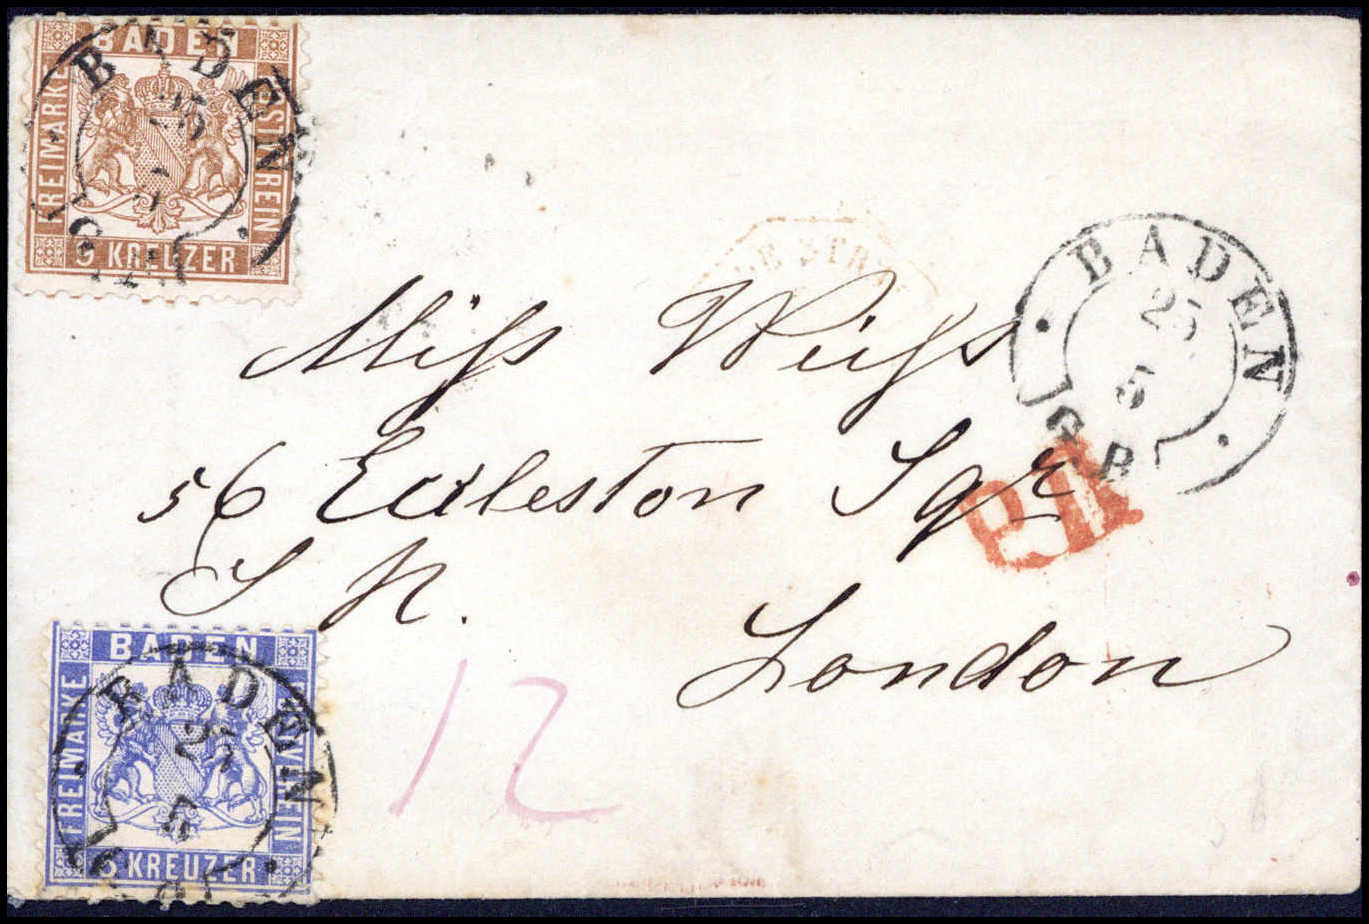 BADEN
FREIMARKE
POSTVEREIN
9 KREUZER
BADEN
25
BADEN
25
5
GR
PD
Miss Weiss
56 Eccleston Sqr
S W.
London
12
BADEN
FREIMARKE
POSTVEREIN
6 KREUZER
BADEN
25
5